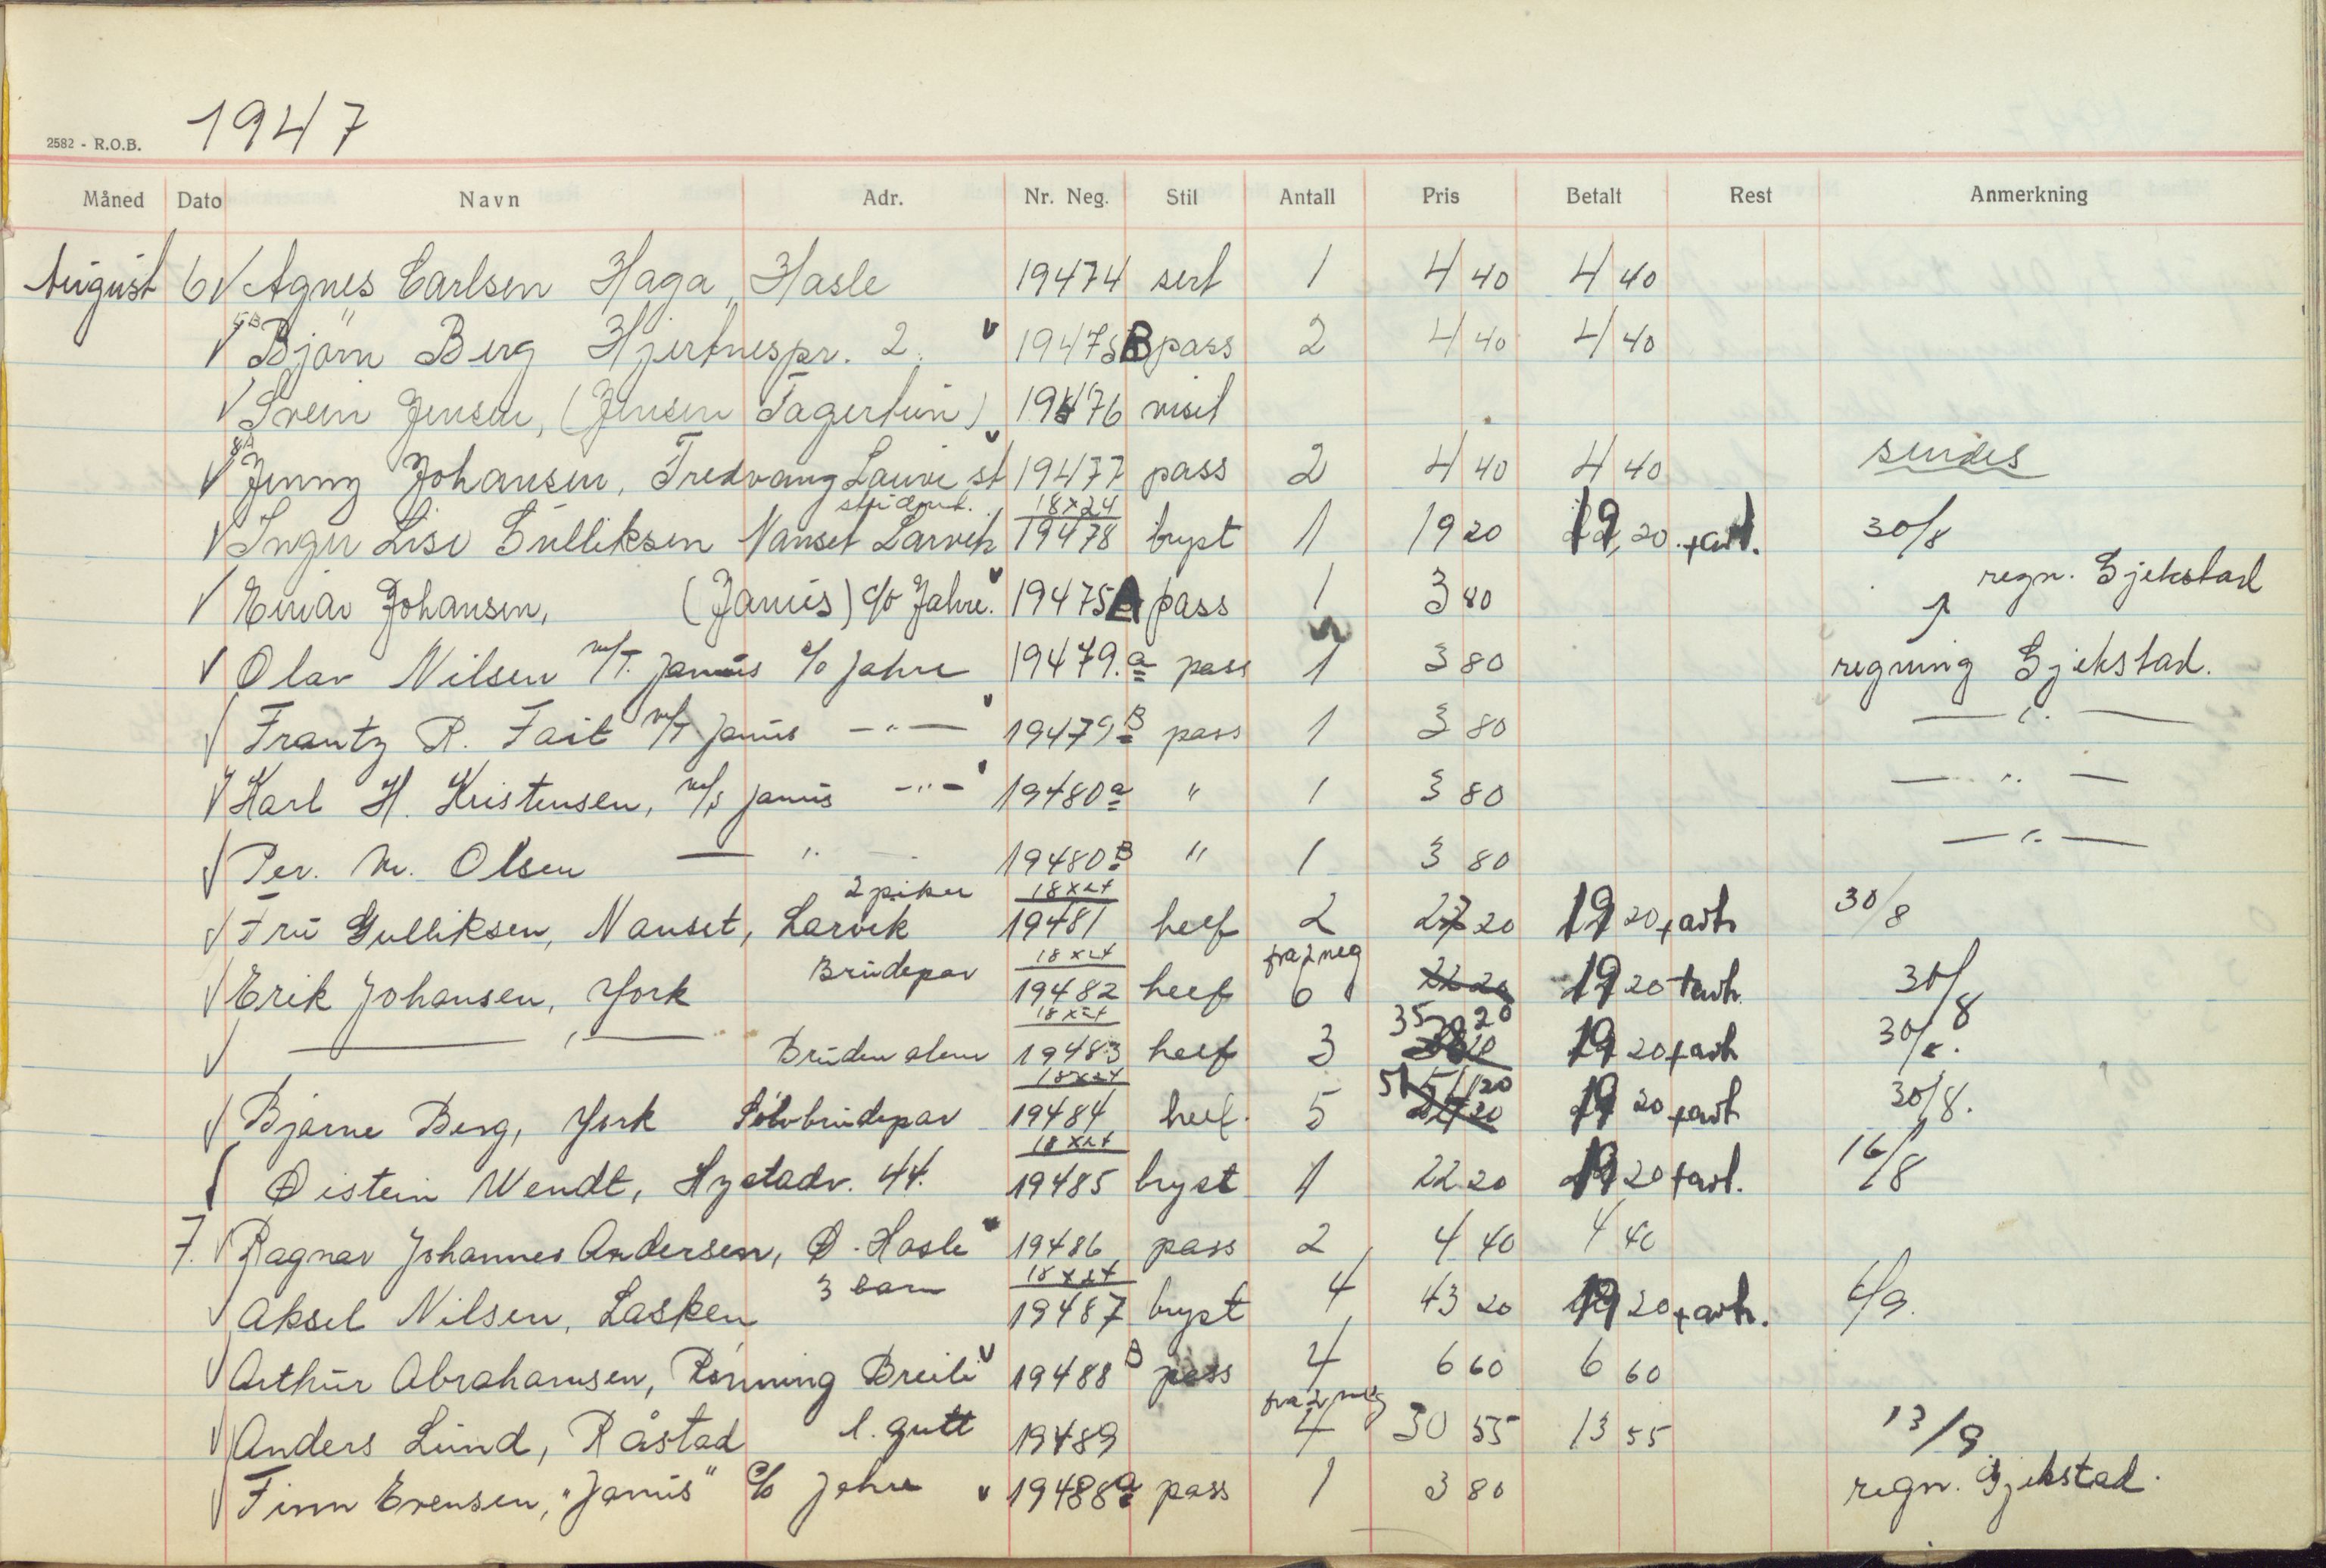 1947
2582 - R.O.B.
Måned Dato Navn Adr. Nr. Neg. Stil Antall Pris Betalt Rest Anmerkning
August 6 Agnes Carlsen Haga, Hasle 19474 sert 1 4 40 4 40
Björn Berg Hjertnespr. 2. 19475 B pass 2 4 40 4 40
Svein Jensen, (Jensen Fagertun) 19476 visit
Jenny Johansen, Fredvang Lauve st 19477 pass 2 4 40 4 40 sendes
student. 18x24
Inger Lise Gulliksen Nanset Larvik 19478 bryst 1 19 20 19 20 + arb. 30/8
Einar Johansen, (Janus) c/o Jahre. 19475 A pass 1 3 80 regn. Gjekstad
Olav Nilsen m/T. Janus c/o Jahre 19479. a pass 1 3 80 regning Gjekstad.
Frantz R. Fait m/T Janus — " — 19479 B pass 1 3 80 — " —
Karl H. Kristensen, m/s Janus — " — 19480 a " 1 3 80 — " —
Per. M. Olsen — " — 19480 B " 1 3 80 — " —
2 piker 18x24
Fru Gulliksen, Nanset, Larvik 19481 helf 2 27 20 19 20 + arb 30/8
Brudepar 18x24 fra 2 neg
Erik Johansen, York 19482 helf 6 22 20 19 20 + arb. 30/8
18x24 35 20
— " — Bruden alene 19483 helf 3 19 20 + arb 30/8.
18x24 51 20
Bjarne Berg, York Sölvbrudepar 19484 helf. 5 19 20 + arb 30/8.
18x24
Øistein Wendt, Hystadv. 44. 19485 bryst 1 22 20 19 20 + arb. 16/8
7. Ragnar Johannes Andersen, Ø. Hasle 19486 pass 2 4 40 4 40
3 barn 18x24
Aksel Nilsen, Lasken 19487 bryst 4 43 20 19 20 + arb. 6/9.
Arthur Abrahamsen, Rönning Breili 19488 B pass 4 6 60 6 60
fra 2 neg
Anders Lund, Råstad l. gutt 19489 4 30 55 13 55 13/9.
Finn Evensen, "Janus" c/o Jahre 19488 a pass 1 3 80 regn. Gjekstad.